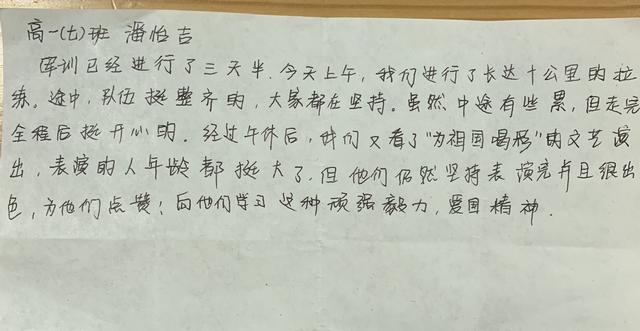 高一(七)班 潘怡吉
军训已经进行了三天半.今天上午,我们进行了长达十公里的拉
练。途中,队伍挺整齐的,大家都在坚持。虽然中途有些累,但走完
全程后挺开心的。经过午休后,我们又看了“为祖国喝彩”的文艺演
出,表演的人年龄都挺大了,但他们仍然坚持表演完并且很出
色,为他们点赞;向他们学习这种顽强毅力,爱国精神.